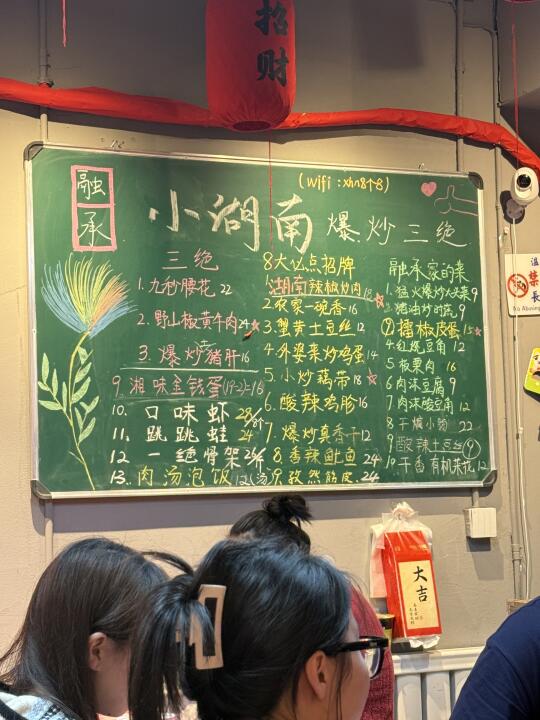 招财
(wifi:xhn8个8)
融承
小湖南 爆炒三绝
三绝
1.九秒腰花 22
2.野山椒黄牛肉 24
3.爆炒猪肝 16
9.湘味金钱蛋(19-2)=16
10.口味虾 28/8个
11.跳跳蛙 24
12 一绝骨架 24/个
13.肉汤泡饭 12(汤)
8大必点招牌
1.湖南辣椒炒肉
2.农家一碗香 16
3.蟹黄土豆丝 12
4.外婆菜炒鸡蛋 14
5.小炒藕带 18
6.酸辣鸡胗 16
7.爆炒真香干 12
8.香辣鱿鱼 24
9.孜然筋皮 24
融承家的菜
1.猛火爆炒大头菜 9
2.猪油炒时蔬 9
③擂椒皮蛋 15
4.红烧豆角 12
5.板栗肉 16
6.肉沫豆腐 9
7.肉沫酸豆角 12
8.干煸小肉 22
9.酸辣土豆丝⑨
10.干香有机菜花 12
温
禁
No
大吉